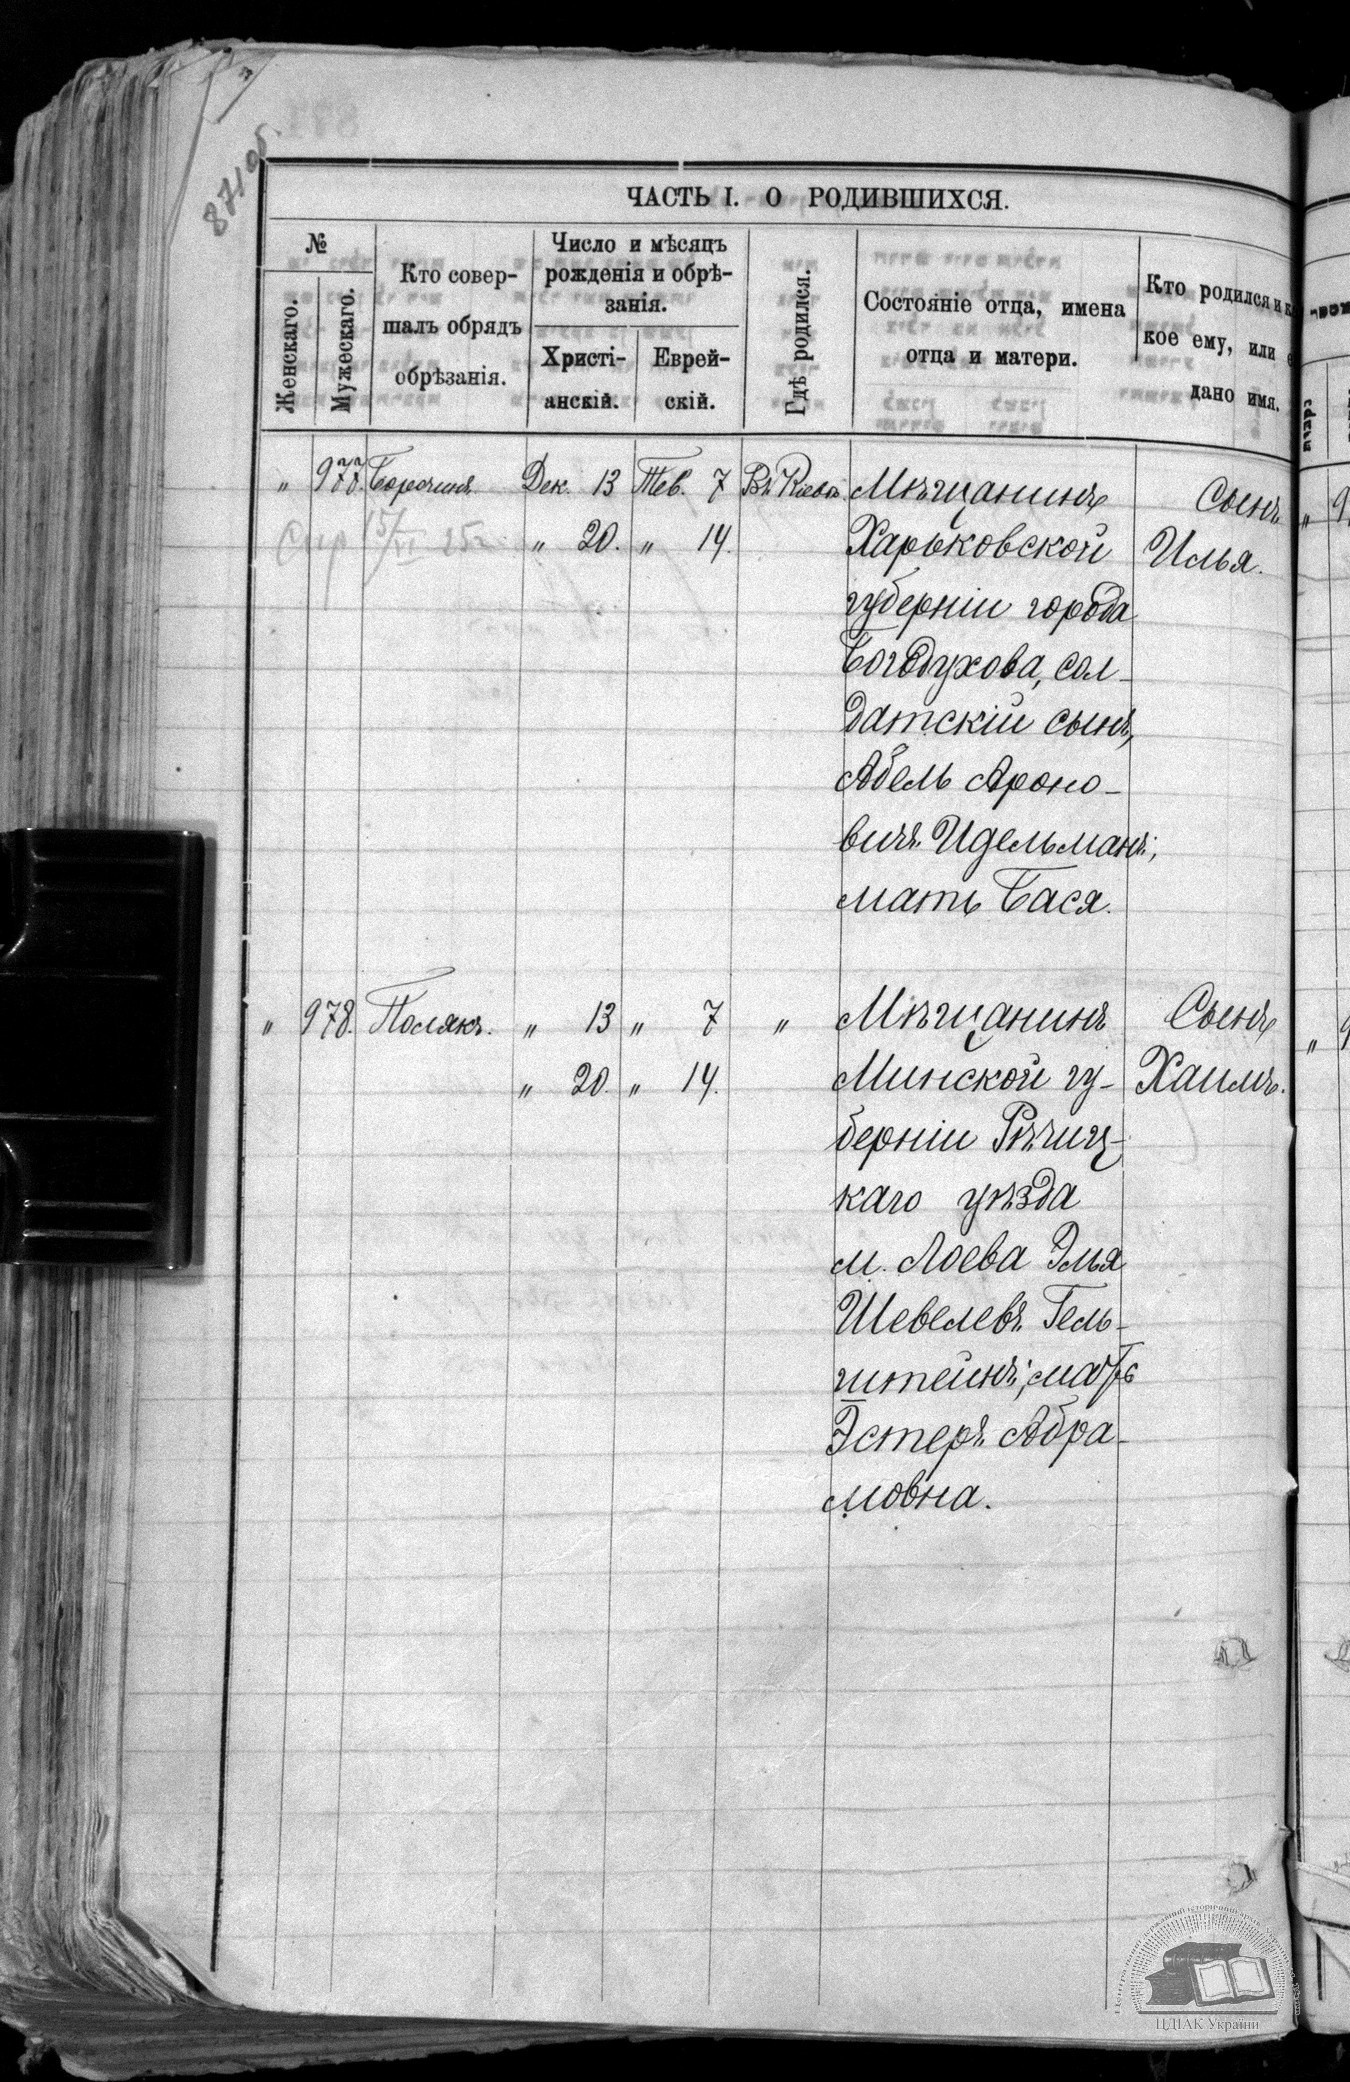 871 об
ЧАСТЬ I. О РОДИВШИХСЯ.
№
Женскаго.
Мужескаго.
Кто совер-
шалъ обрядъ
обрѣзанія.
Число и мѣсяцъ
рожденія и обрѣ-
занія.
Христі-
анскій.
Еврей-
скій.
Гдѣ родился.
Состояніе отца, имена
отца и матери.
Кто родился и ка
кое ему, или е
дано имя.
" 977. Дек. 13 Тев. 7 Въ Кіевѣ. Мѣщанинъ Сынъ
15/VI 25г. " 20. " 14. Харьковской Илья.
губерніи города
Богодухова, сол-
датскій сынъ,
Абель Ароно-
вичъ Идельманъ;
мать Бася.
" 978. Полякъ. " 13 " 7 " Мѣщанинъ Сынъ
" 20. " 14. Минской гу- Хаимъ.
берніи Рѣчиц-
каго уѣзда
м. Лоева Элья
Шевелевъ Гель-
штейнъ; мать
Эстеръ Абра-
мовна.
ЦДІАК України